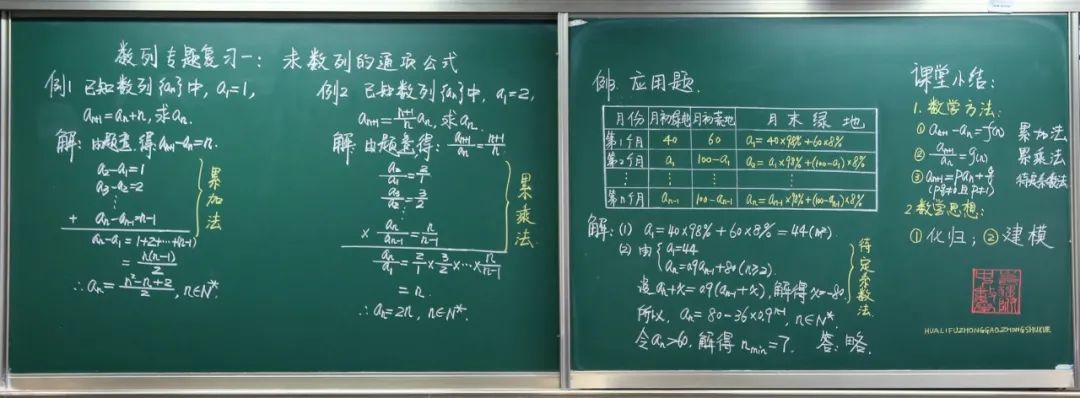 数列专题复习一：求数列的通项公式
例1 已知数列{aₙ}中，a₁=1，
aₙ₊₁=aₙ+n，求aₙ.
解：由题意得aₙ₊₁-aₙ=n.
a₂-a₁=1
a₃-a₂=2
⋮
+ aₙ-aₙ₋₁=n-1
aₙ-a₁=1+2+…+(n-1)
=n(n-1)/2
∴aₙ=(n²-n+2)/2，n∈N*.
累加法
例2 已知数列{aₙ}中，a₁=2，
aₙ₊₁=(n+1)/n aₙ，求aₙ.
解：由题意得：aₙ₊₁/aₙ=(n+1)/n
a₂/a₁=2/1
a₃/a₂=3/2
⋮
× aₙ/aₙ₋₁=n/(n-1)
aₙ/a₁=2/1×3/2×…×n/(n-1)
=n.
∴aₙ=2n，n∈N*.
累乘法
例3 应用题.
月份 月初绿地 月初荒地 月末绿地
第1个月 40 60 a₁=40×98%+60×8%
第2个月 a₁ 100-a₁ a₂=a₁×98%+(100-a₁)×8%
⋮ ⋮ ⋮ ⋮
第n个月 aₙ₋₁ 100-aₙ₋₁ aₙ=aₙ₋₁×98%+(100-aₙ₋₁)×8%
解：(1) a₁=40×98%+60×8%=44(m²).
(2) 由{a₁=44
aₙ=0.9aₙ₋₁+8(n≥2).
设aₙ+x=0.9(aₙ₋₁+x)，解得x=-80.
所以，aₙ=80-36×0.9ⁿ⁻¹，n∈N*.
令aₙ>60，解得nₘᵢₙ=7. 答：略.
待定系数法
课堂小结：
1.数学方法：
①aₙ₊₁-aₙ=f(n) 累加法
②aₙ₊₁/aₙ=g(n) 累乘法
③aₙ₊₁=paₙ+q 待定系数法
(pq≠0且p≠1)
2.数学思想：
①化归；②建模
HUALIFUZHONGGAOZHONGSHUXUE